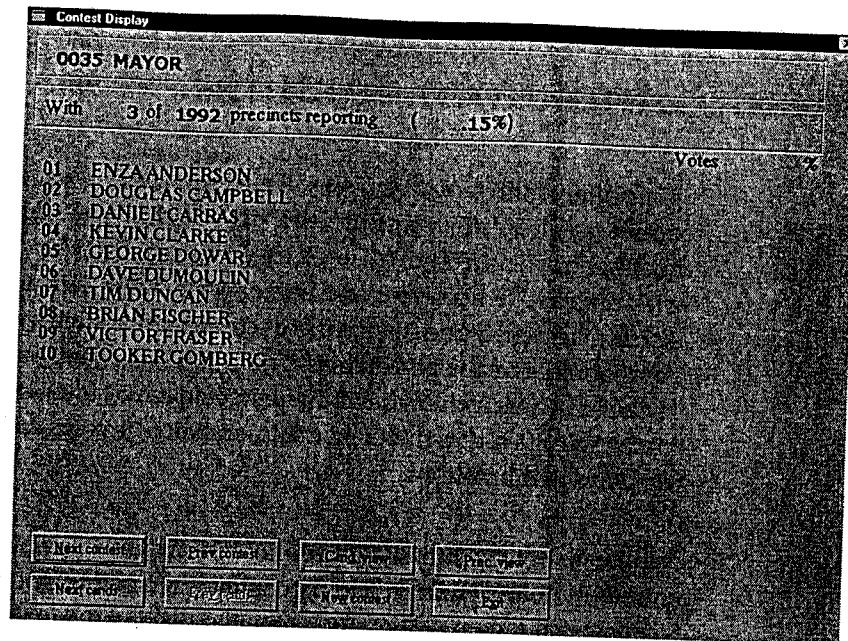 Contest Display
0035 MAYOR
With 3 of 1992 precincts reporting ( .15%)
Votes %
01 ENZA ANDERSON
02 DOUGLAS CAMPBELL
03 DANIEL CARRAS
04 KEVIN CLARKE
05 GEORGE DOWAR
06 DAVE DUMOULIN
07 TIM DUNCAN
08 BRIAN FISCHER
09 VICTOR FRASER
10 TOOKER GOMBERG
Next contest Prev contest view
Next cand Prev cand New contest